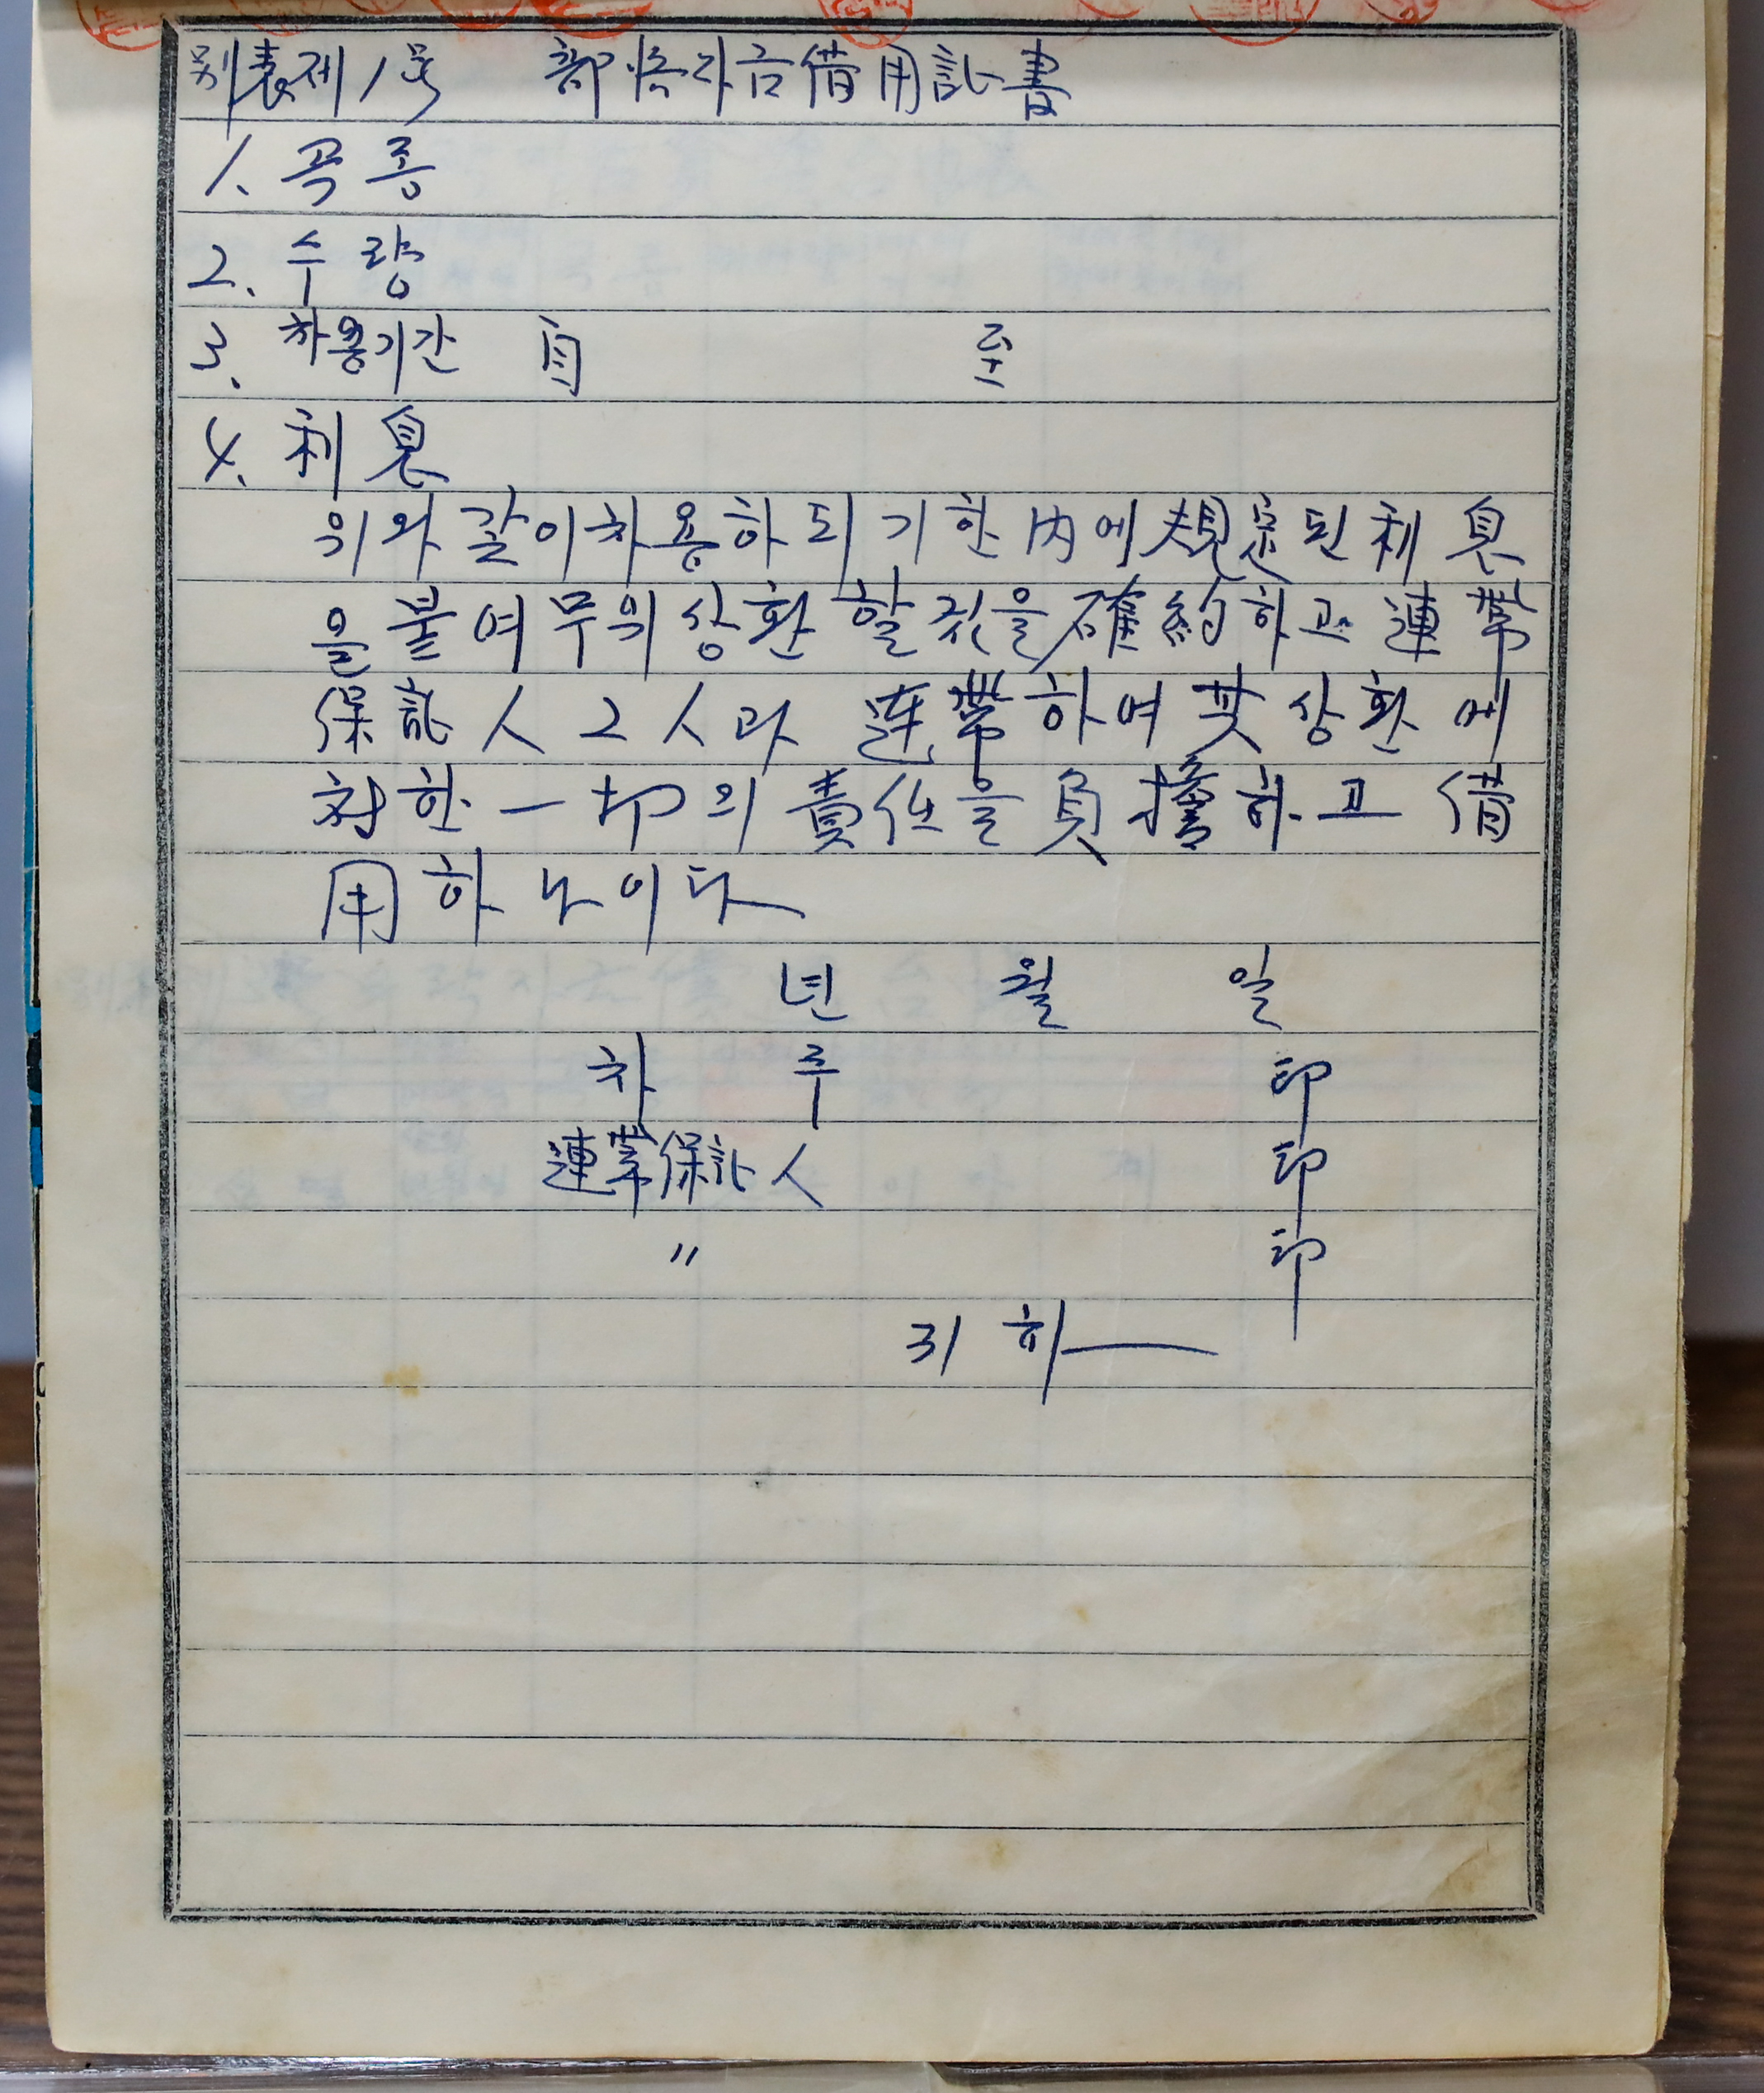 別表제1号 部落자금借用証書
1. 곡종
2. 수량
3. 차용기간 自 至
4. 利息
위와 같이 차용하되 기한 内에 規定된 利息
을 붙여 무위 상환 할것을 確約하고 連帶
保証人 2人과 連帶하여 其 상환에
対한 一切의 責任을 負擔하고 借
用하나이다
년 월 일
차 주 印
連帶保証人 印
〃 印
귀하